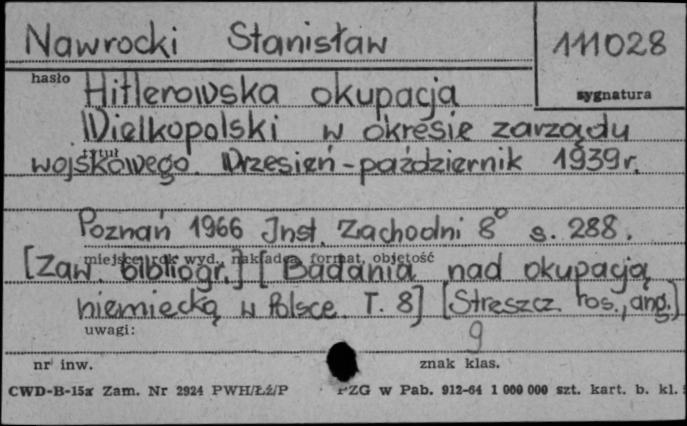 Nawrocki Stanisław
111028
hasło
sygnatura
Hitlerowska okupacja
Wielkopolski w okresie zarządu
tytuł
wojskowego. Wrzesień-październik 1939r.
Poznań 1966 Inst. Zachodni 8° s. 288.
miejsce, rok wyd., nakładca, format, objętość
[Zaw. bibliogr.] [Badania nad okupacją
niemiecką w Polsce. T. 8] [Streszcz. ros., ang.]
uwagi:
9
nr inw.
znak klas.
CWD-B-15a Zam. Nr 2924 PWH/Łź/P PZG w Pab. 912-64 1 000 000 szt. kart. b. kl.